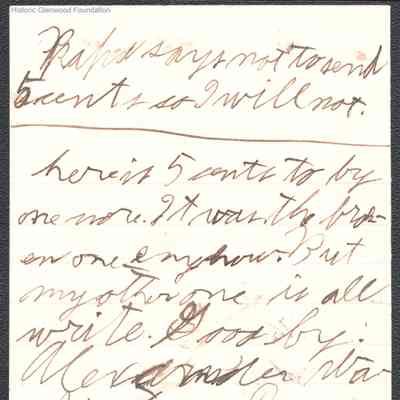 Historic Glenwood Foundation
Papa says not to send
5 cents so I will not.
here is 5 cents to by
one more. It was the bro-
en one enyhow. But
my other one is all
write. Good by.
Alexander